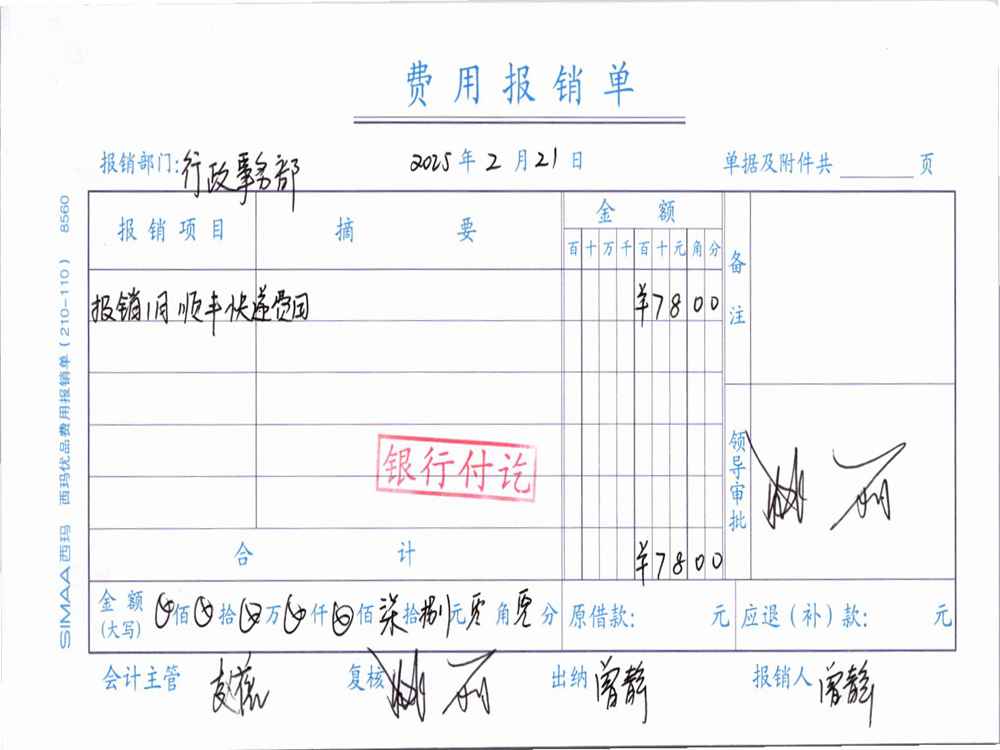 费用报销单
报销部门:行政事务部 2025年2月21日 单据及附件共 页
报销项目 摘要 金额 备注
百十万千百十元角分
报销1月顺丰快递费用 ¥7800
银行付讫
领导审批
合计 ¥7800
金额(大写) 佰 拾 万 仟 佰 柒拾捌元零角零分 原借款: 元 应退(补)款: 元
会计主管 复核 出纳 曾静 报销人 曾静
SIMAA西玛 西玛优品费用报销单(210-110) 8560